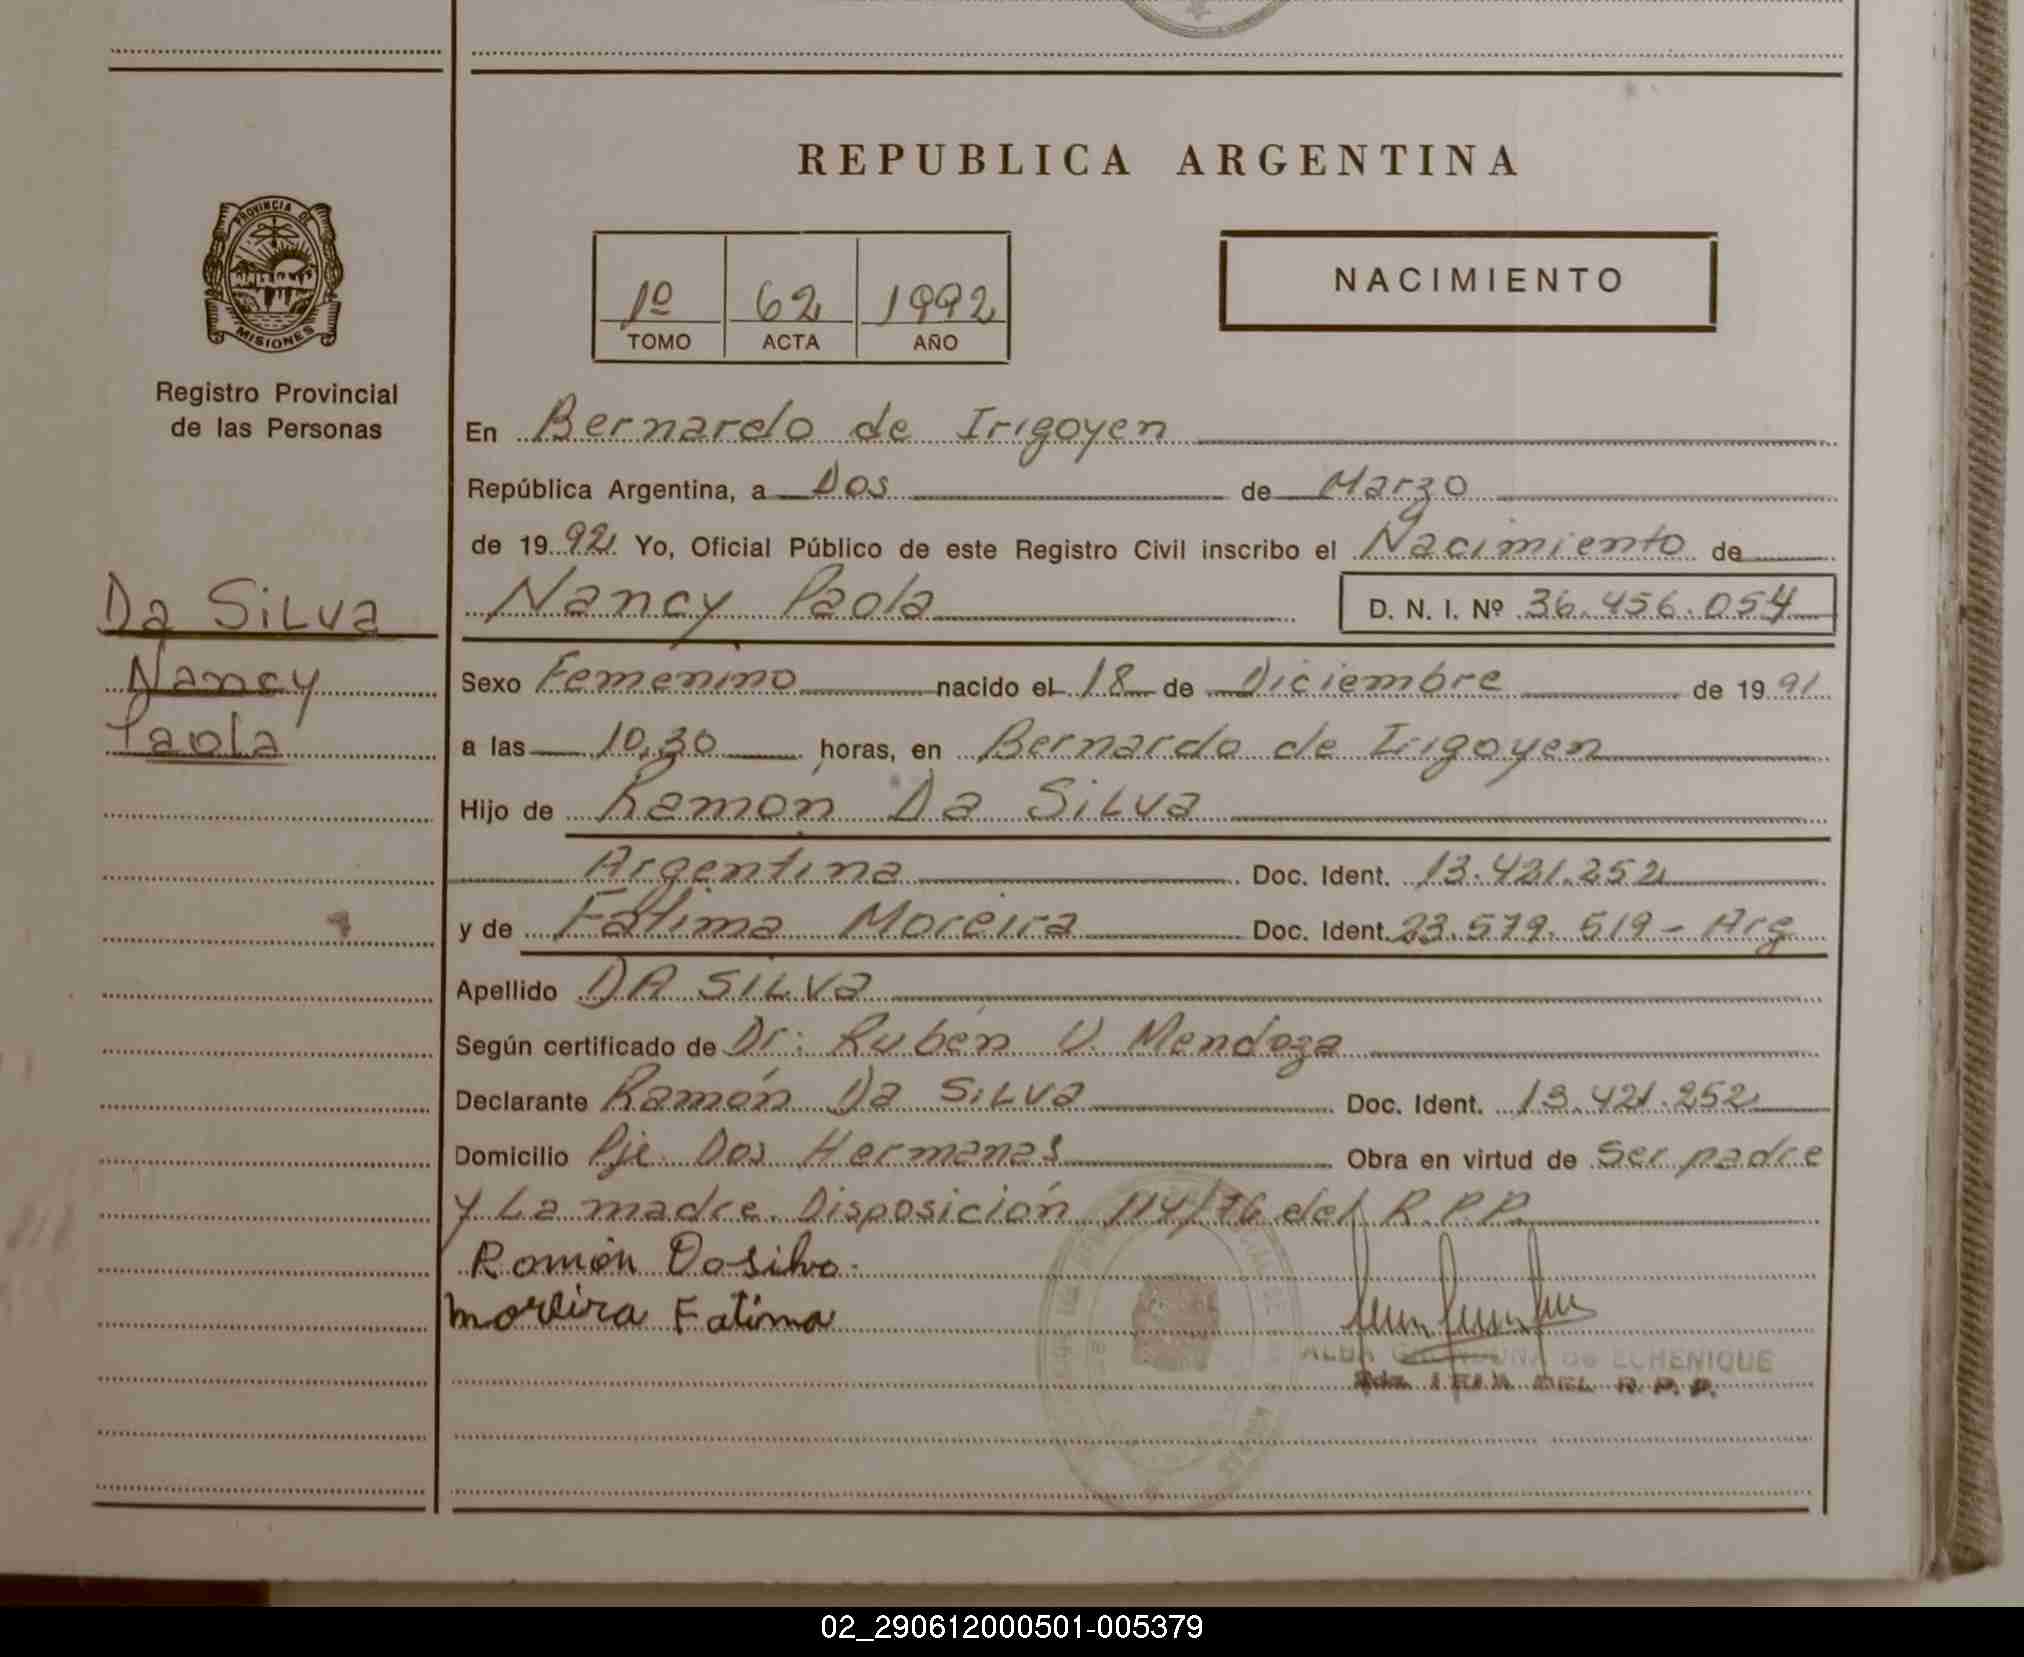 REPUBLICA ARGENTINA
PROVINCIA DE
MISIONES
Registro Provincial
de las Personas
1º 62 1992
TOMO ACTA AÑO
NACIMIENTO
En Bernardo de Irigoyen
República Argentina, a Dos de Marzo
de 1992 Yo, Oficial Público de este Registro Civil inscribo el Nacimiento de
Nancy Paola D. N. I. Nº 36.456.054
Da SiLva
Nancy
Paola
Sexo Femenino nacido el 18 de Diciembre de 1991
a las 10,30 horas, en Bernardo de Irigoyen
Hijo de Ramón Da SiLva
Argentina Doc. Ident. 13.421.252
y de Fatima Moreira Doc. Ident. 23.579.519 - Arg
Apellido DA SiLva
Según certificado de Dr: Rubén V. Mendoza
Declarante Ramón Da SiLva Doc. Ident. 13.421.252
Domicilio Pje. Dos Hermanas Obra en virtud de Ser padre
y La madre. Disposición 114/76 del R.P.P.
Ramón Dasilva
moreira Fatima
ALBA de ECHENIQUE
DEL R. P. P.
02_290612000501-005379